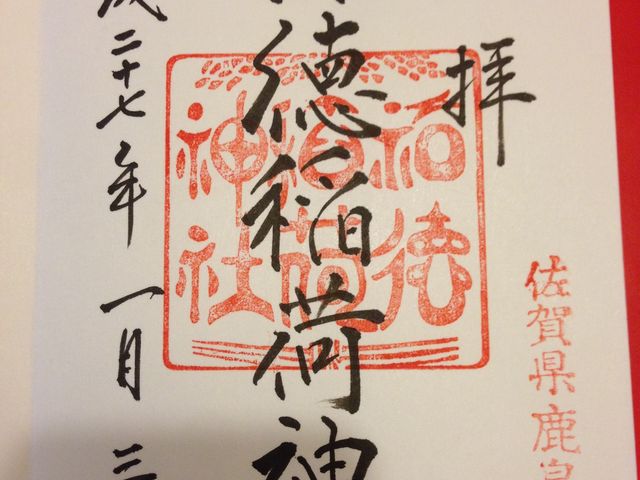 佐賀県鹿
拝
祐徳
稲荷
神社
徳稲荷神
成二十七年 一月 三